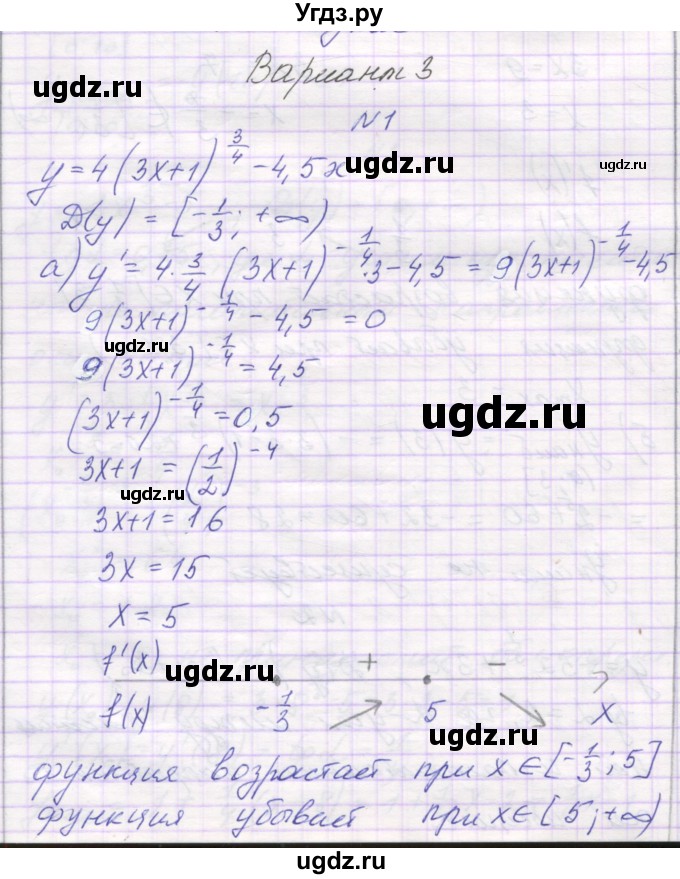 Угдз.ру
Вариант 3
ugdz.ru
N1
y = 4(3x+1)^{3/4} - 4,5x
ugdz.ru
ugdz.ru
D(y) = [-1/3; +∞)
а) y' = 4·3/4 (3x+1)^{-1/4}·3 - 4,5 = 9(3x+1)^{-1/4} - 4,5
9(3x+1)^{-1/4} - 4,5 = 0
ugdz.ru
9(3x+1)^{-1/4} = 4,5
(3x+1)^{-1/4} = 0,5
ugdz.ru
3x+1 = (1/2)^{-4}
ugdz.ru
3x+1 = 16
3x = 15
x = 5
f'(x) + -
ugdz.ru
f(x) -1/3 5 x
ugdz.ru
функция возрастает при x ∈ [-1/3; 5]
функция убывает при x ∈ [5; +∞)
ugdz.ru